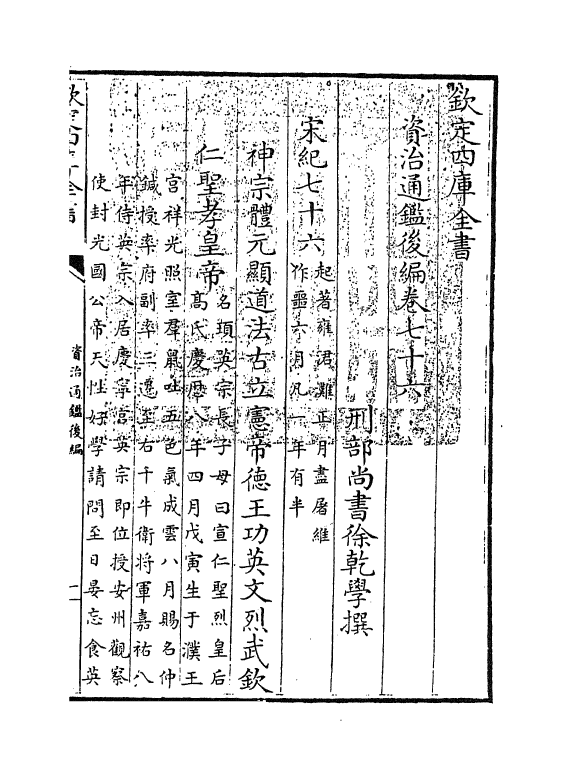 欽定四庫全書
資治通鑑後編卷七十六
刑部尚書徐乾學撰
宋紀七十六
起著雍涒灘正月盡屠維
作噩六月凡一年有半
神宗體元顯道法古立憲帝德王功英文烈武欽
仁聖孝皇帝
名頊英宗長子母曰宣仁聖烈皇后
髙氏慶厯八年四月戊寅生于濮王
宫祥光照室羣鼠吐五色氣成雲八月賜名仲
鍼授率府副率三遷至右千牛衛將軍嘉祐八
年侍英宗入居慶寧宫英宗即位授安州觀察
使封光國公帝天性好學請問至日晏忘食英
欽定四庫全書
資治通鑑後編
一